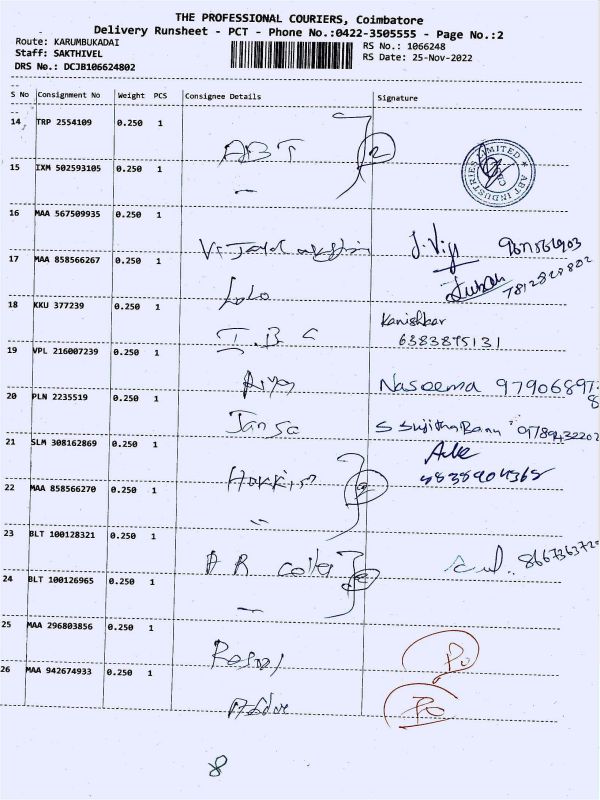 THE PROFESSIONAL COURIERS, Coimbatore
Delivery Runsheet - PCT - Phone No.:0422-3505555 - Page No.:2
Route: KARUMBUKADAI
Staff: SAKTHIVEL
DRS No.: DCJB106624802
RS No.: 1066248
RS Date: 25-Nov-2022
S No Consignment No Weight PCS Consignee Details Signature
14 TRP 2554109 0.250 1 ABT 2
ABT INDUSTRIES LIMITED
15 IXM 502593105 0.250 1
16 MAA 567509935 0.250 1 J. Viji
17 MAA 858566267 0.250 1 Lolo
18 KKU 377239 0.250 1 Kanishkar
6383895131
19 VPL 216007239 0.250 1 Riya Naseema 979068978
20 PLN 2235519 0.250 1 Jansa S Sujitha Banu
21 SLM 308162869 0.250 1
22 MAA 858566270 0.250 1
23 BLT 100128321 0.250 1 A R
24 BLT 100126965 0.250 1
25 MAA 296803856 0.250 1 Po
26 MAA 942674933 0.250 1 Po
8